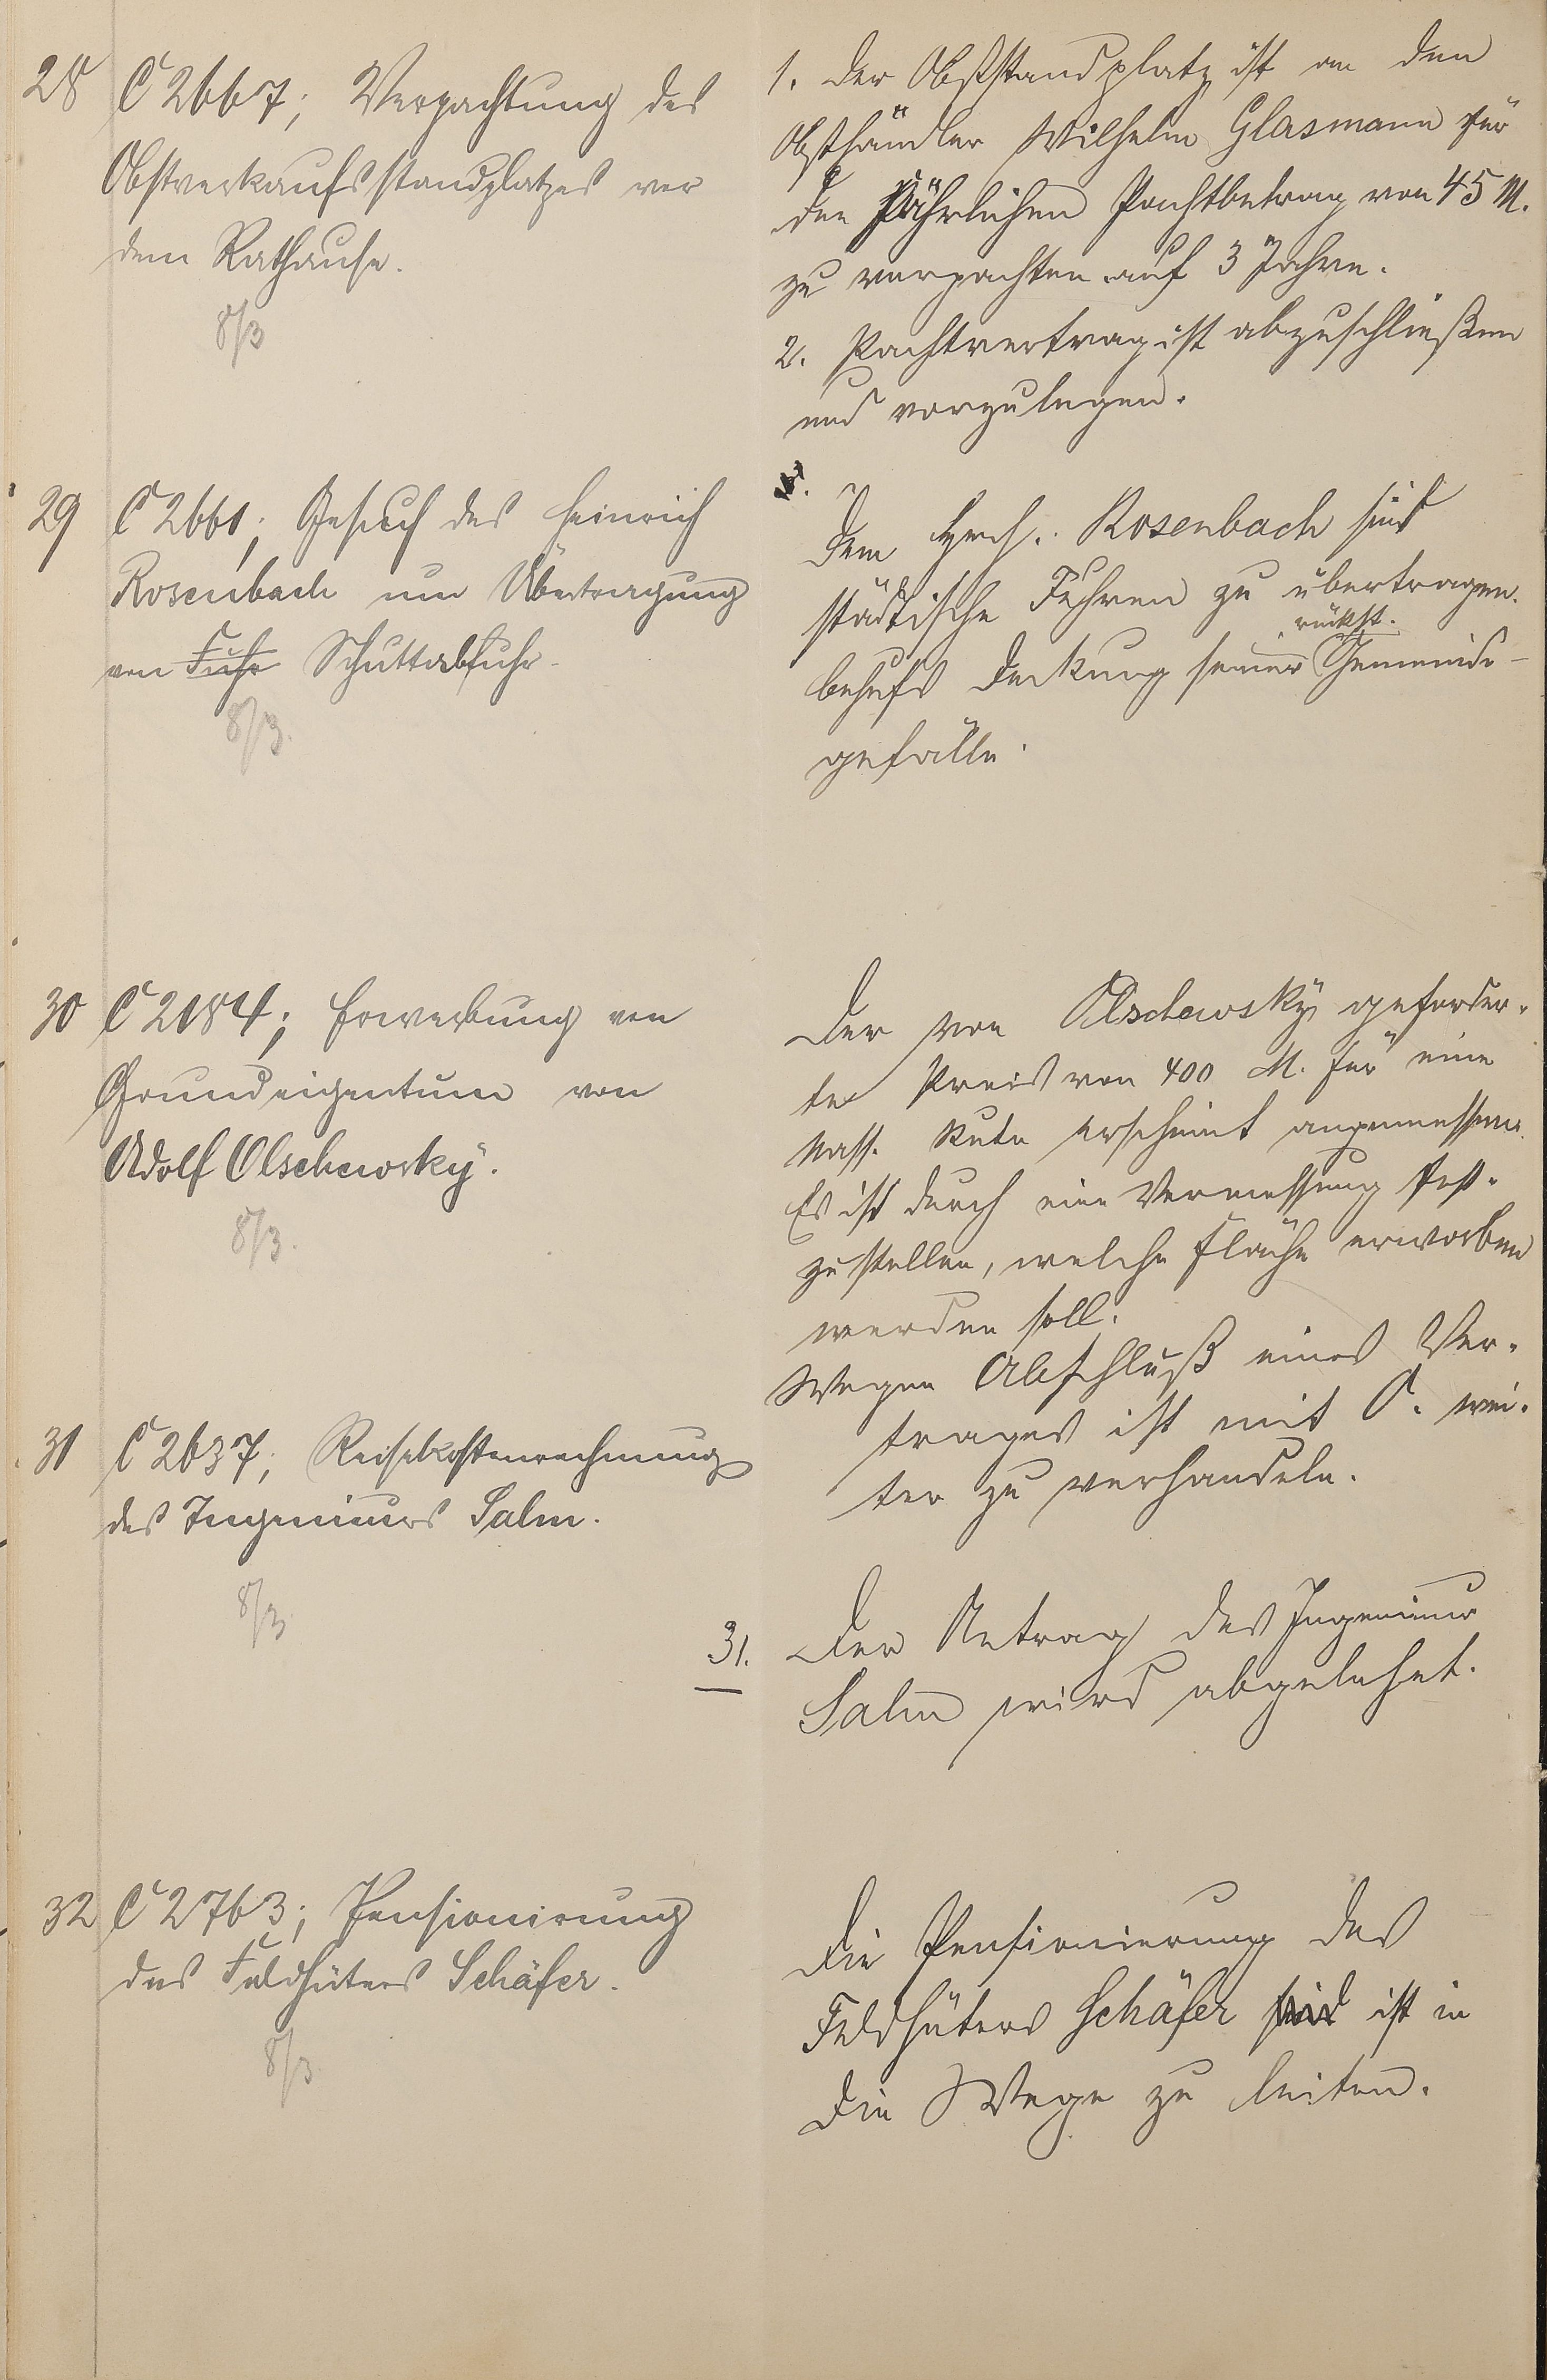 28 C 2667; Verpachtung des
Obstverkaufsstandplatzes vor
dem Rathause.
8/3
1. Der Obststandplatz ist an den
Obsthändler Wilhelm Glasmann für
den jährlichen Pachtbetrag von 45 M.
zu verpachten auf 3 Jahre.
2. Pachtvertrag ist abzuschließen
und vorzulegen.
29 C 2661; Gesuch des Heinrich
Rosenbach um Übertragung
von Fuhr Schuttabfuhr.
8/3.
Dem Hrch. Rosenbach sind
städtische Fuhren zu übertragen
rückst.
behufs Deckung seiner Gemeinde-
gefälle.
30 C 2184; Erwerbung von
Grundeigentum von
Adolf Olschewsky.
8/3.
Der von Olschewsky geforder-
te Preis von 400 M. für eine
Nass. Rute erscheint angemessen.
Es ist durch eine Vermessung fest-
zustellen, welche Fläche erworben
werden soll.
Wegen Abschluß eines Ver-
trages ist mit O. wei-
ter zu verhandeln.
31 C 2637; Reisekostenrechnung
des Ingenieurs Salm.
8/3
31. Der Antrag des Ingenieur
Salm wird abgelehnt.
32 C 2763; Pensionirung
des Feldhüters Schäfer.
8/3
Die Pensionierung des
Feldhüters Schäfer sind ist in
die Wege zu leiten.